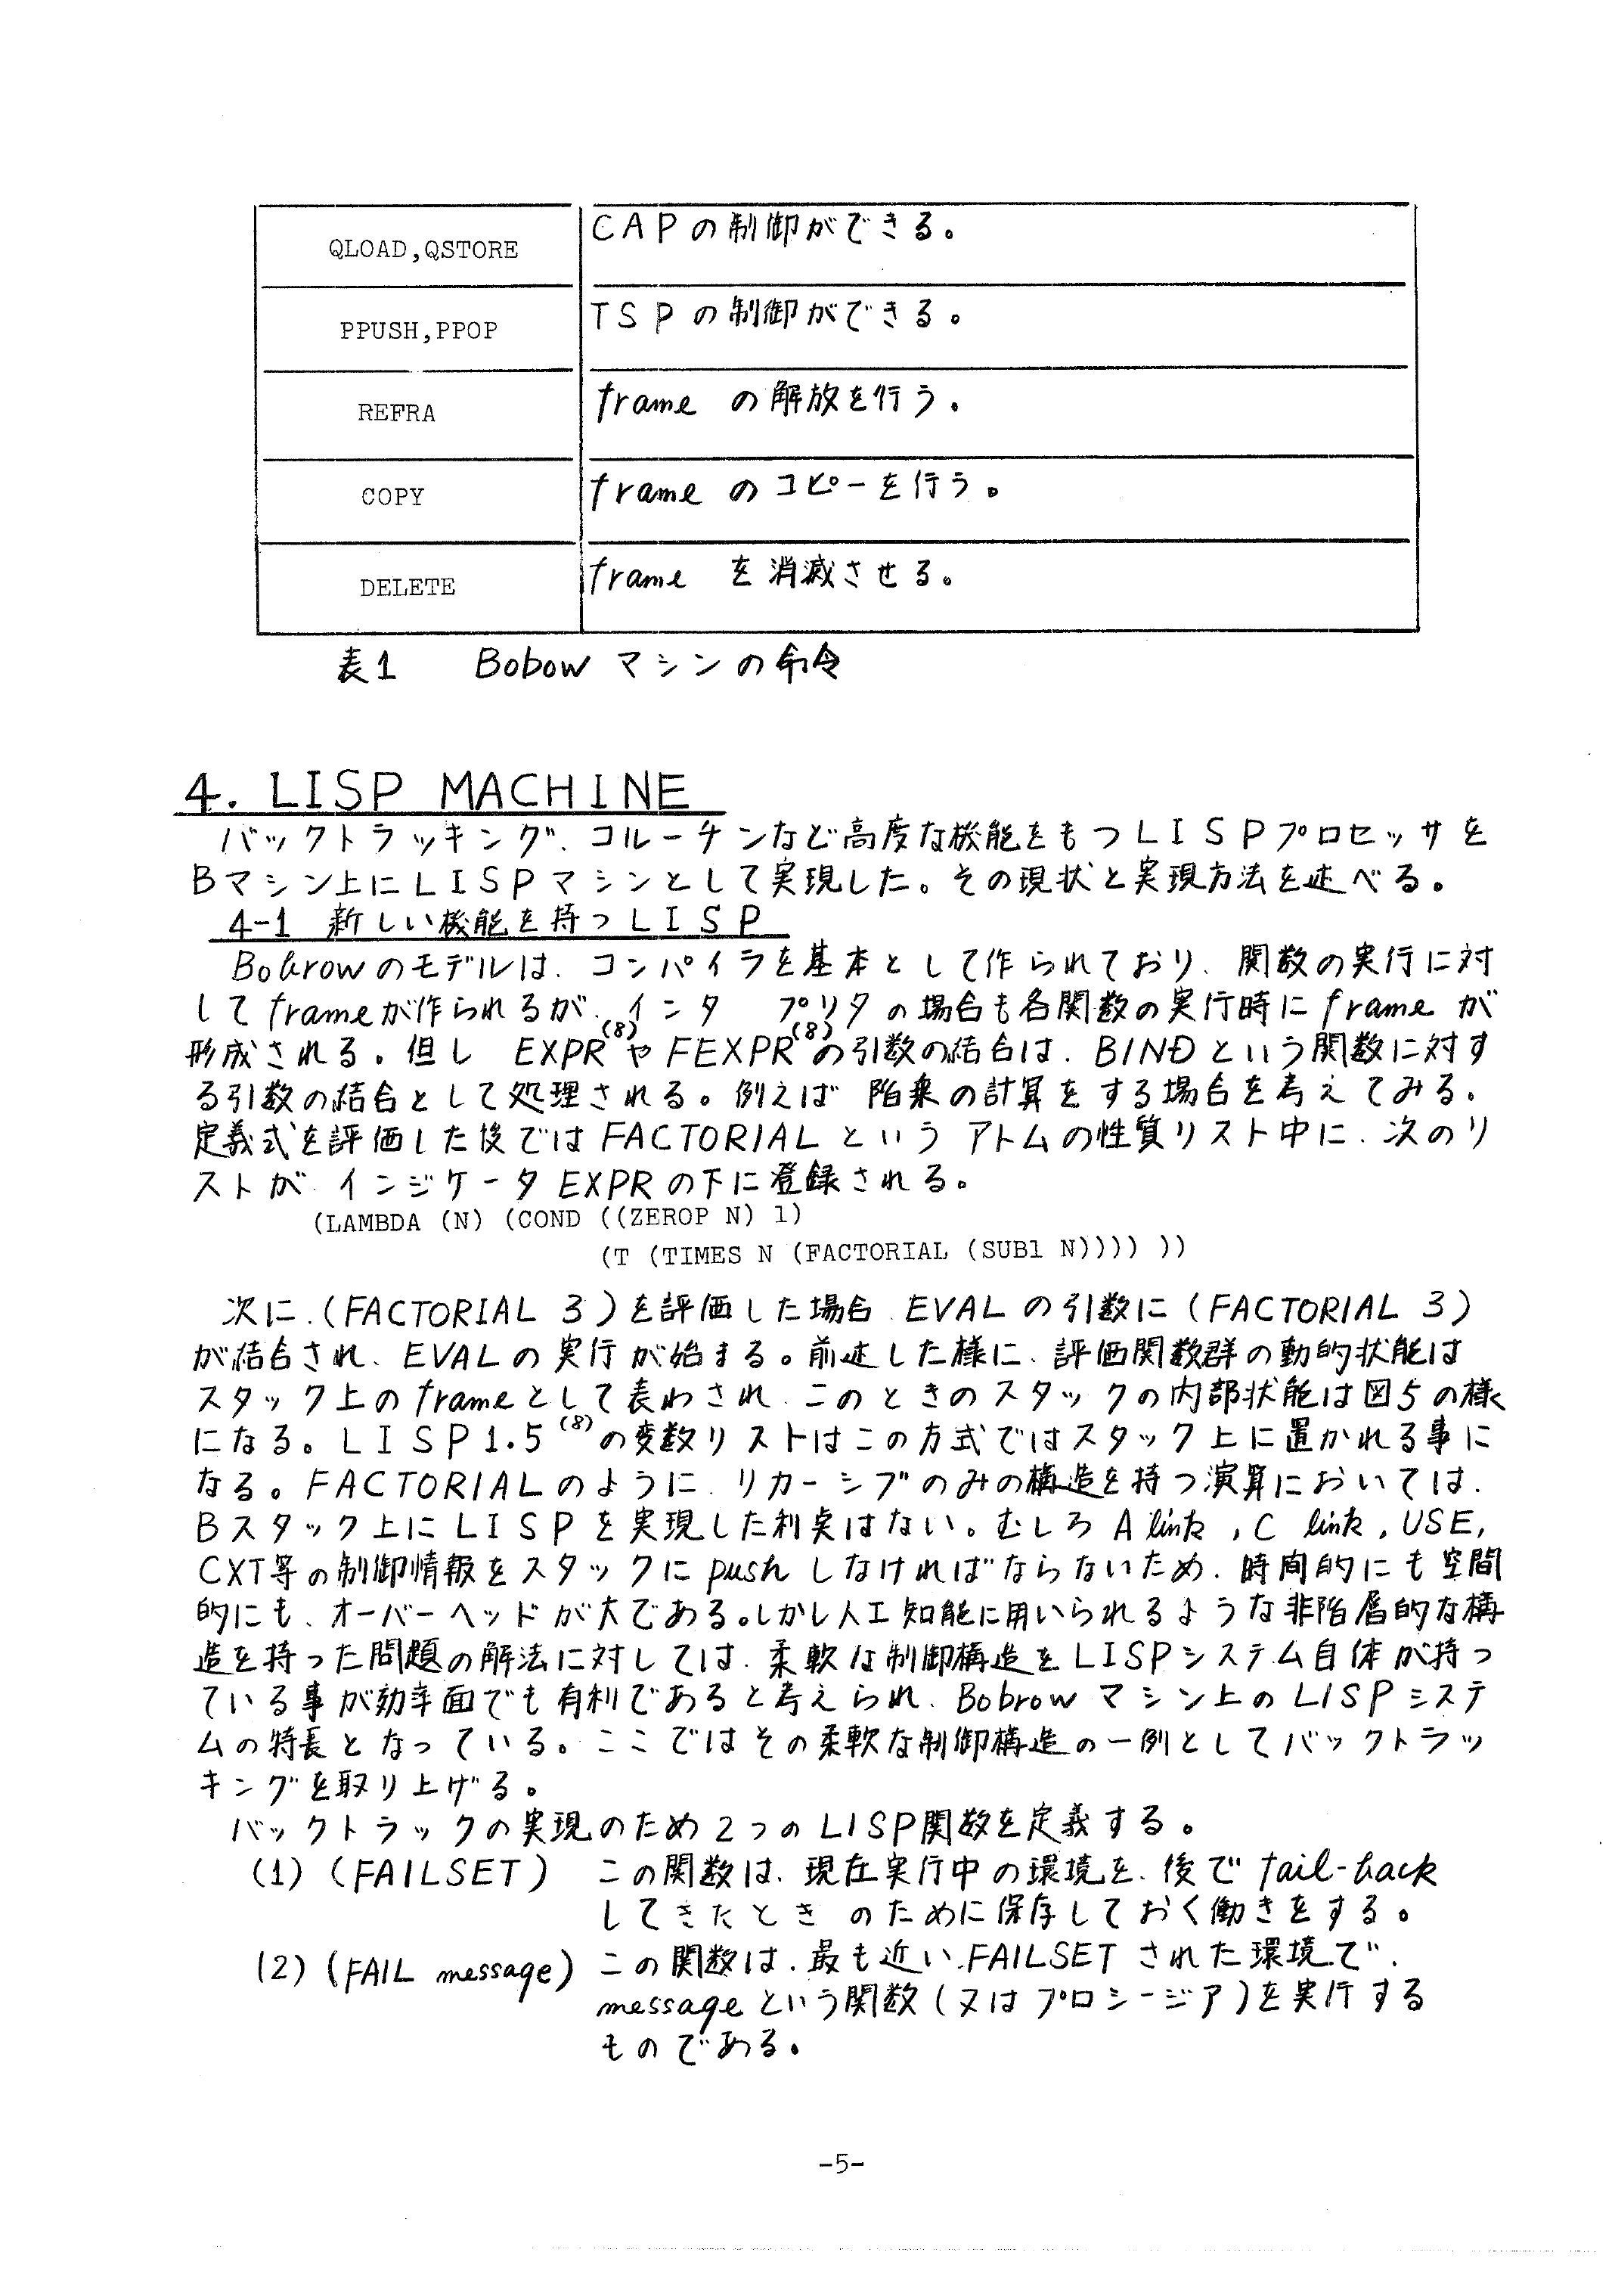 QLOAD,QSTORE CAPの制御ができる。
PPUSH,PPOP TSPの制御ができる。
REFRA frame の解放を行う。
COPY frame のコピーを行う。
DELETE frame を消滅させる。
表1 Bobow マシンの命令
4. LISP MACHINE
バックトラッキング、コルーチンなど高度な機能をもつLISPプロセッサを
Bマシン上にLISPマシンとして実現した。その現状と実現方法を述べる。
4-1 新しい機能を持つLISP
Bobrowのモデルは、コンパイラを基本として作られており、関数の実行に対
してframeが作られるが、インタ プリタの場合も各関数の実行時にframe が
形成される。但し EXPR(8)や FEXPR(8)の引数の結合は、BINDという関数に対す
る引数の結合として処理される。例えば 階乗の計算をする場合を考えてみる。
定義式を評価した後ではFACTORIALという アトムの性質リスト中に、次のリ
ストが、インジケータEXPRの下に登録される。
(LAMBDA (N) (COND ((ZEROP N) 1)
(T (TIMES N (FACTORIAL (SUB1 N)))) ))
次に、(FACTORIAL 3)を評価した場合、EVALの引数に(FACTORIAL 3)
が結合され、EVALの実行が始まる。前述した様に、評価関数群の動的状態は
スタック上のframeとして表わされ、このときのスタックの内部状態は図5の様
になる。LISP1.5(8)の変数リストはこの方式ではスタック上に置かれる事に
なる。FACTORIALのように、リカーシブのみの構造を持つ演算においては、
Bスタック上にLISPを実現した利点はない。むしろ A link , C link , USE,
CXT等の制御情報をスタックに push しなければならないため、時間的にも空間
的にも、オーバーヘッドが大である。しかし人工知能に用いられるような非階層的な構
造を持った問題の解法に対しては、柔軟な制御構造をLISPシステム自体が持っ
ている事が効率面でも有利であると考えられ、Bobrowマシン上のLISPシステ
ムの特長となっている。ここではその柔軟な制御構造の一例としてバックトラッ
キングを取り上げる。
バックトラックの実現のため2つのLISP関数を定義する。
(1) (FAILSET) この関数は、現在実行中の環境を、後で fail-back
してきたとき のために保存しておく働きをする。
(2) (FAIL message) この関数は、最も近いFAILSETされた環境で、
messageという関数(又はプロシージア)を実行する
ものである。
-5-